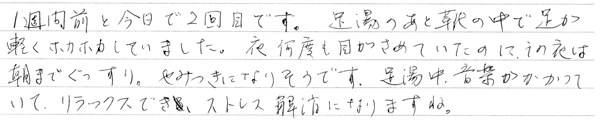 1週間前と今日で2回目です。 足湯のあと靴の中で足が
軽くホカホカしていました。夜何度も目がさめていたのに、その夜は
朝までぐっすり。やみつきになりそうです。足湯中、音楽がかかって
いて、リラックスでき、ストレス解消になりますね。